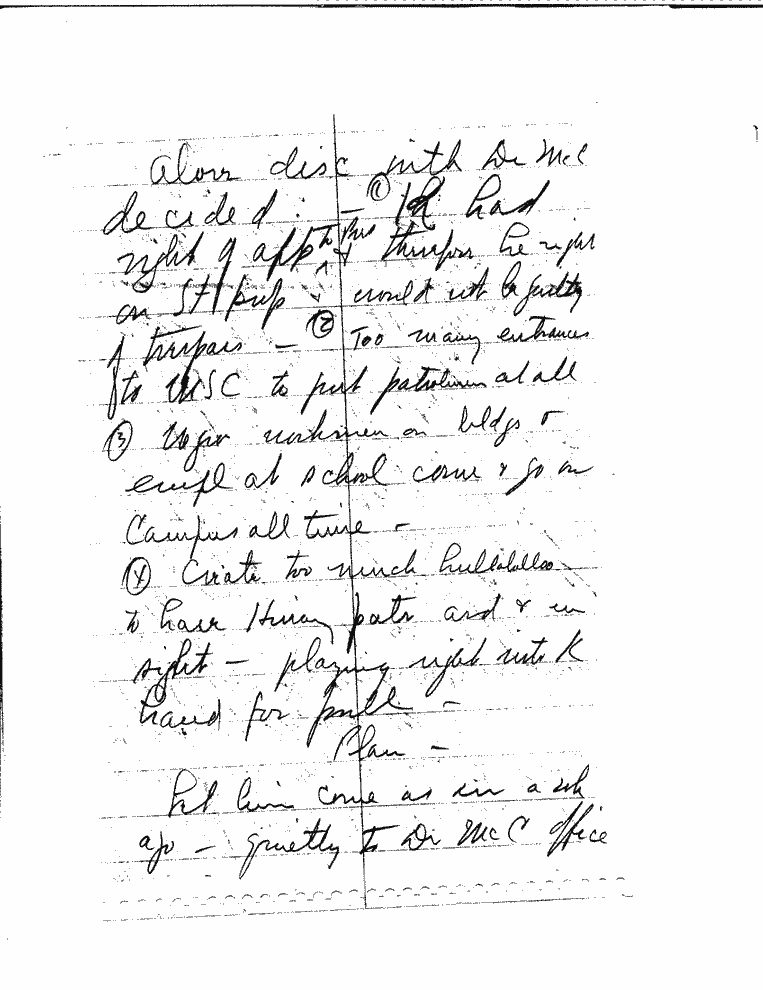 disc with Dr McC
decided: — ① K had
right of app to Pres & therefore he right
on St prop & could not be guilty
of trespass — ② Too many entrances
to MSC to put patrolmen at all
③ Negro workmen on bldgs &
empl at school come & go on
Campus all time —
④ Create too much hullaballoo
to have Hiway patr and & in
sight — playing right into K
hand for publ —
Plan —
Let him come as in a wk
ago — quietly to Dr McC office